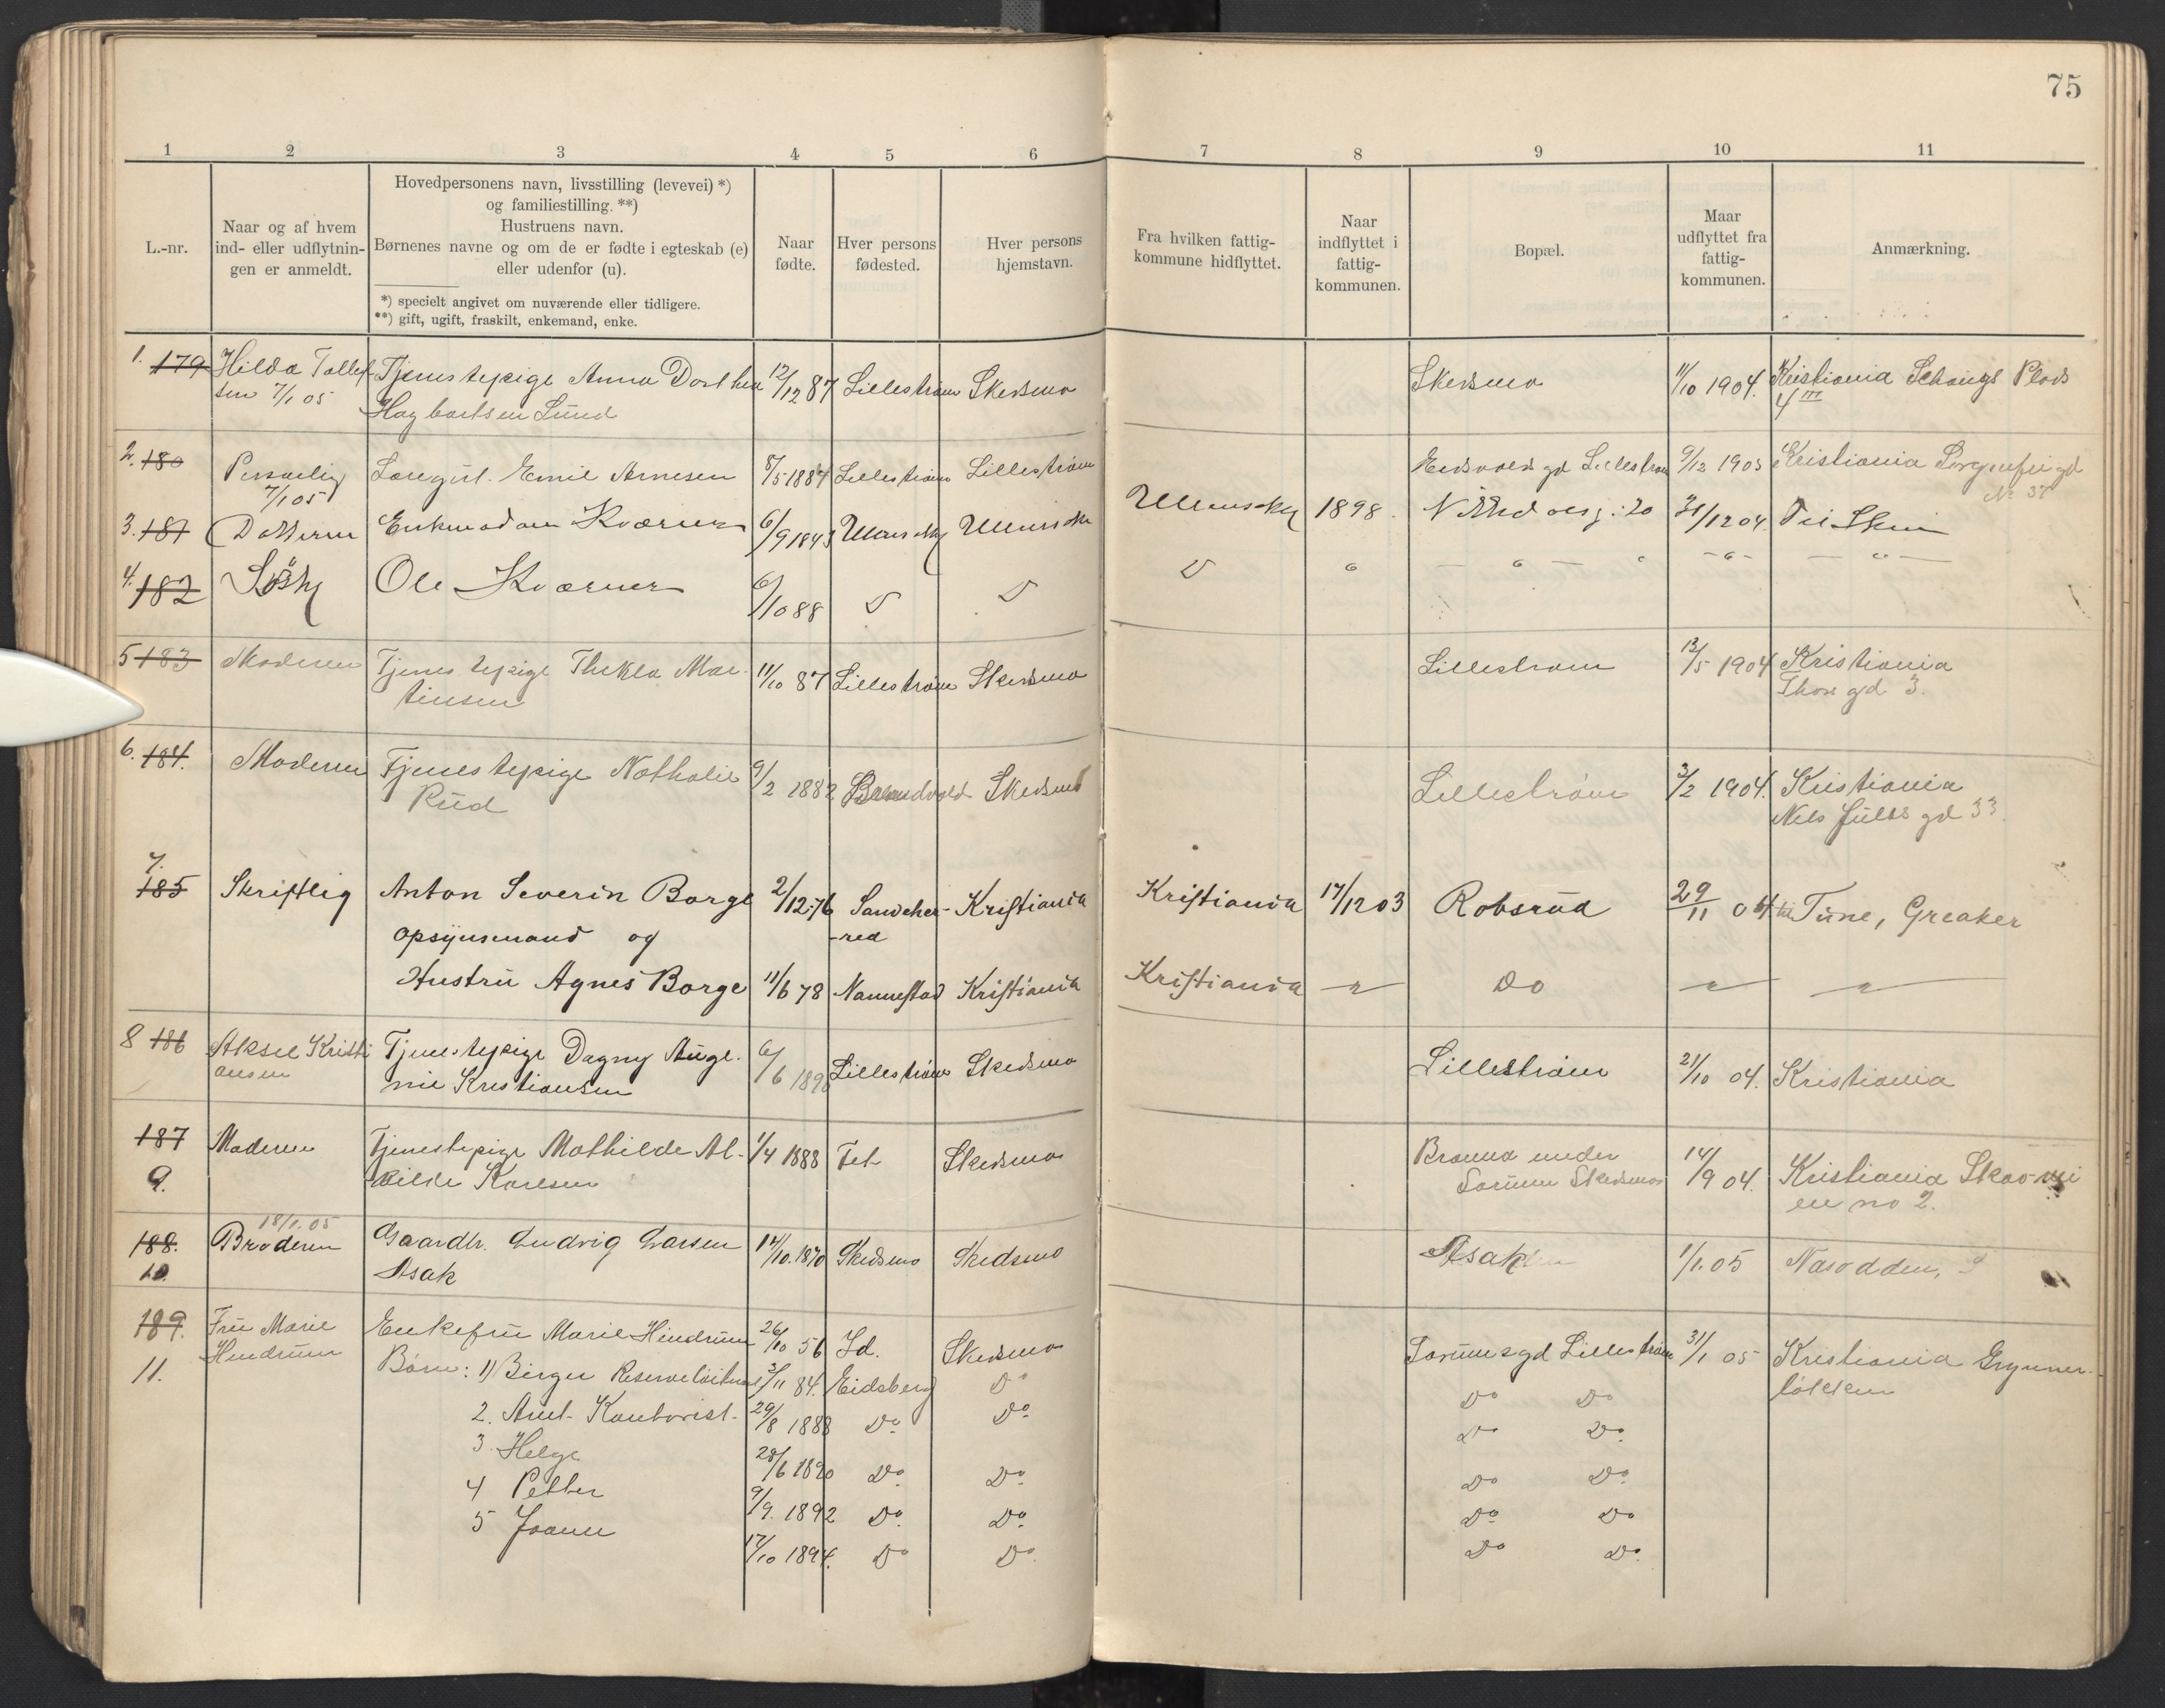 75
1 2 3 4 5 6 7 8 9 10 11
L.-nr.
Naar og af hvem
ind- eller udflytnin-
gen er anmeldt.
Hovedpersonens navn, livsstilling (levevei) *)
og familiestilling. **)
Hustruens navn.
Børnenes navne og om de er fødte i egteskab (e)
eller udenfor (u).
*) specielt angivet om nuværende eller tidligere.
**) gift, ugift, fraskilt, enkemand, enke.
Naar
fødte.
Hver persons
fødested.
Hver persons
hjemstavn.
Fra hvilken fattig-
kommune hidflyttet.
Naar
indflyttet i
fattig-
kommunen.
Bopæl.
Maar
udflyttet fra
fattig-
kommunen.
Anmærkning.
1. 179 Hilda Tollef Tjenestepige Anna Dorthea 12/12 87 Lillestrøm Skedsmo Skedsmo 11/10 1904. Kristiania Schougs Plads
sen 7/1 05 Hagbartsen Lund 4 III
2. 180 Personlig Emil Arnesen 8/5 1884 Lillestrøm Lillestrøm Eidsvolds gd Lillestrøm 9/12 1903 Kristiania Sorgenfri gd
7/1 05 No 37
3. 181 Datteren Enkemadam Kværner 6/9 1843 Ullensaker 1898 20 31/12 04 Til Skui
4. 182 Ole Kværner 6/10 88 D D D
5 183 Moderen Tjenestepige Thekla Mar- 11/10 87 Lillestrøm Skedsmo Lillestrøm 13/5 1904 Kristiania
tinsen Thors gd 3.
6. 184. Moderen Tjenestepige Nathalie 9/2 1882 Brandvold Skedsmo Lillestrøm 3/2 1904. Kristiania
Rud Nils Juels gd 33.
7. 185 Skriftlig Anton Severin Borge 2/12 76 Sandeher- Kristiania Kristiania 17/12 03 Robsrud 29/11 04 til Tune, Greaker
opsynsmand og -red
Hustru Agnes Borge 11/6 78 Nannestad Kristiania Kristiania Do
8 186 Aksel Kristi Tjenestepige Dagny 6/6 Lillestrøm Skedsmo Lillestrøm 21/10 04. Kristiania
ansen Kristiansen
187 Moderen Tjenestepige Mathilde Al- 1/4 1888 Fet Skedsmo Branna under 14/9 04. Kristiania
9. vilde Karlsen Sørum Skedsmo no 2.
18/1. 05
188. Broderen Gaardbr. Ludvig Larsen 14/10. 1870 Skedsmo Skedsmo Asak 1/1. 05 Nasodden,
10. Asak
189. Fru Marie Enkefru Marie Hindrum 26/10 56 Id. Skedsmo Sørumsgd Lillestrøm 31/1 05 Kristiania Grynner-
11. Hindrum Børn: 1) Birger Reserveløitnant 3/11 84. Eidsberg Do Do Do løkken
2. Kontorist. 29/8 1888 Do Do. Do Do.
3. Helge 28/6 1890 Do. Do. Do Do.
4 Petter 9/9. 1892 Do. Do. Do Do
5 17/10 1894. Do Do. Do Do.